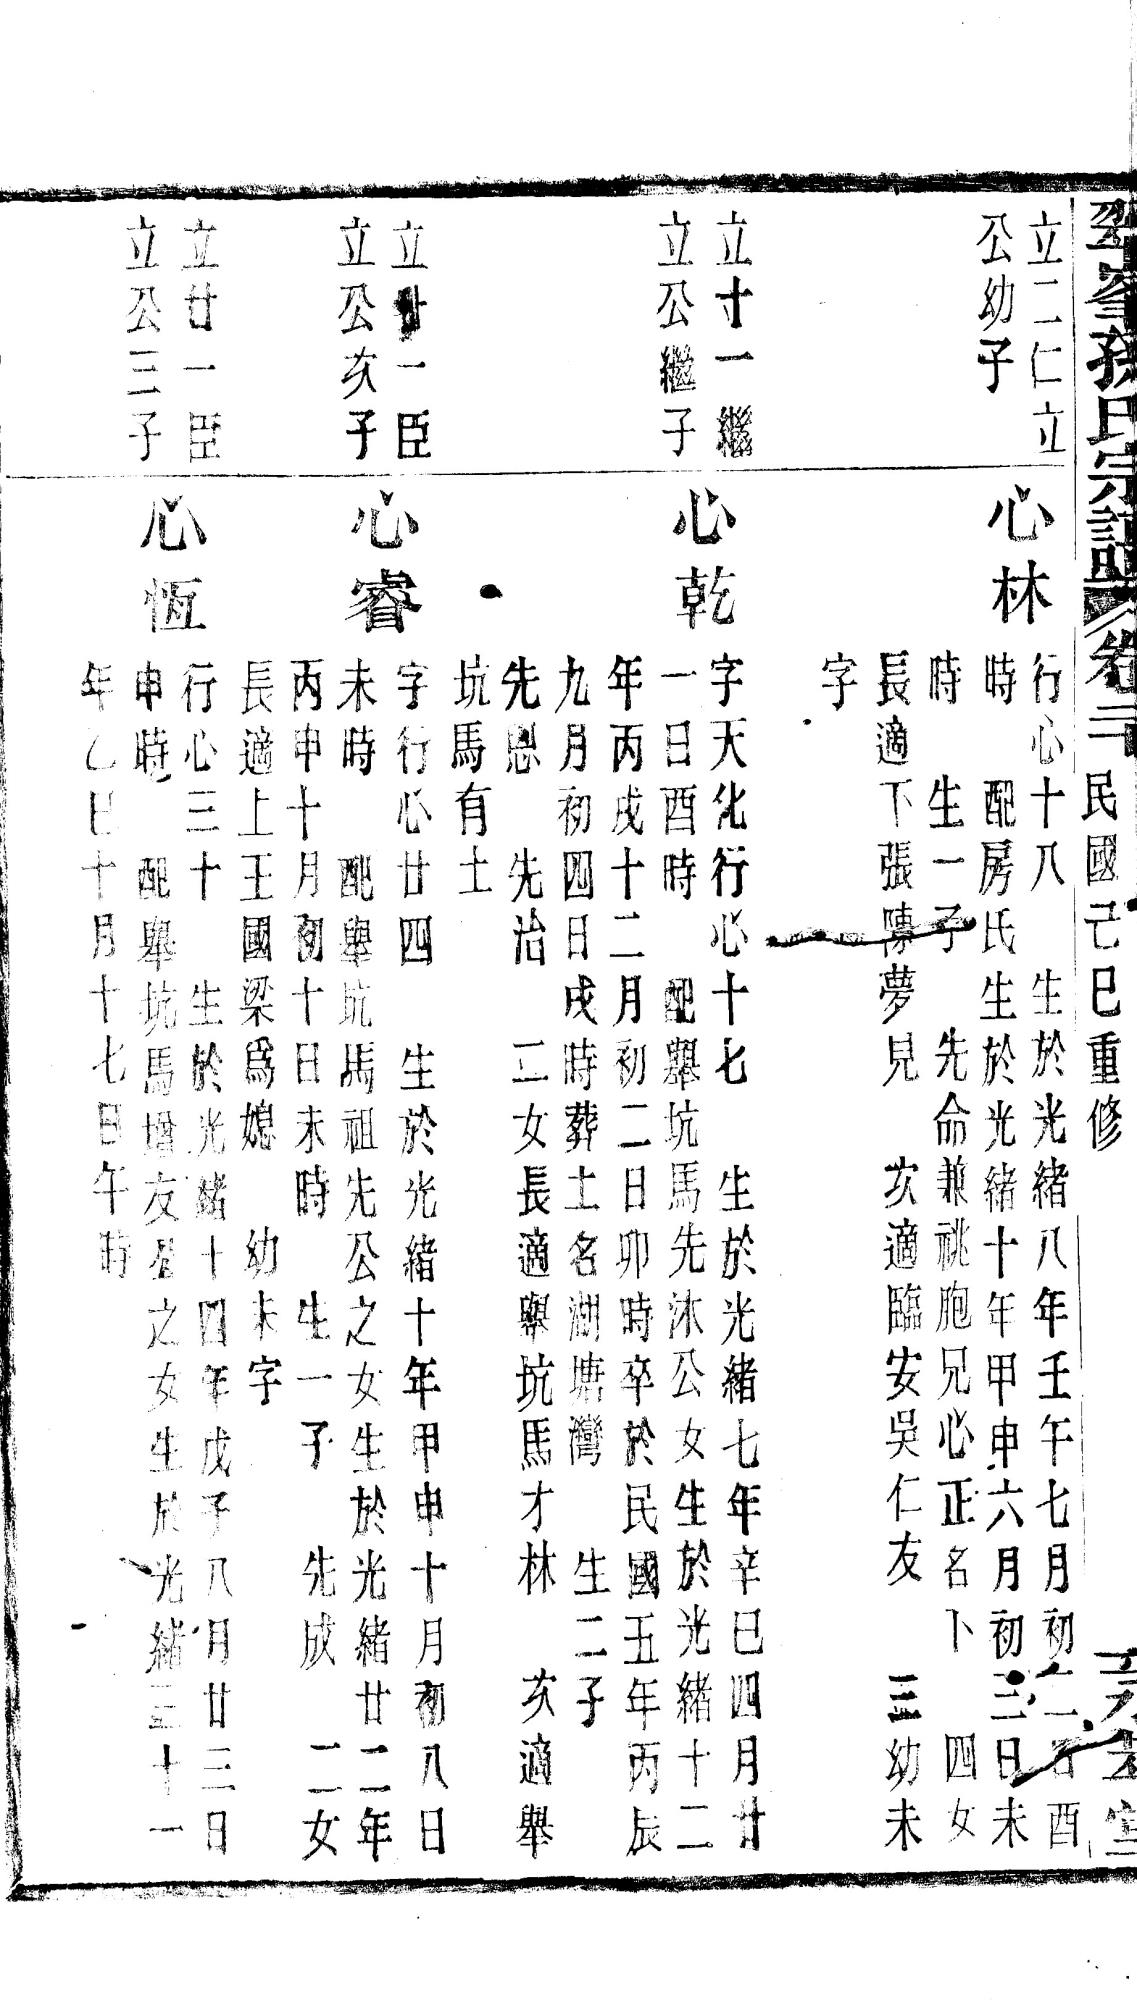 峯孫氏宗譜
卷二
民國己巳重修
立二仁立
公幼子
心林
行心十八 生於光緒八年壬午七月初二日酉
時 配房氏生於光緒十年甲申六月初三日未
時 生一子 先命兼祧胞兄心正名卜 四女
長適下張陳夢見 次適臨安吳仁友 三幼未
字
立十一繼
立公繼子
心乾
字天化行心十七 生於光緒七年辛巳四月廿
一日酉時 配舉坑馬先沐公女生於光緒十二
年丙戌十二月初二日卯時卒於民國五年丙辰
九月初四日戌時葬土名湖塘灣 生二子
先恩 先治 二女長適舉坑馬才林 次適舉
坑馬有土
立廿一臣
立公次子
心睿
字行心廿四 生於光緒十年甲申十月初八日
未時 配舉坑馬祖先公之女生於光緒廿二年
丙申十月初十日未時 生一子 先成 二女
長適上王國梁爲媳 幼未字
立廿一臣
立公三子
心恆
行心三十 生於光緒十四年戊子八月廿三日
申時 配舉坑馬增友公之女生於光緒三十一
年乙巳十月十七日午時